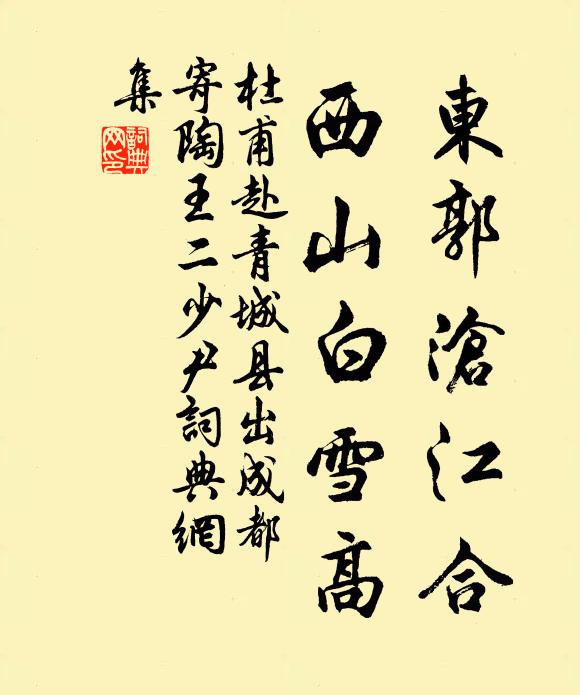 東郭滄江合
西山白雪高
杜甫赴青城县出成都
寄陶王二少尹詞典網
集
詞典
网印